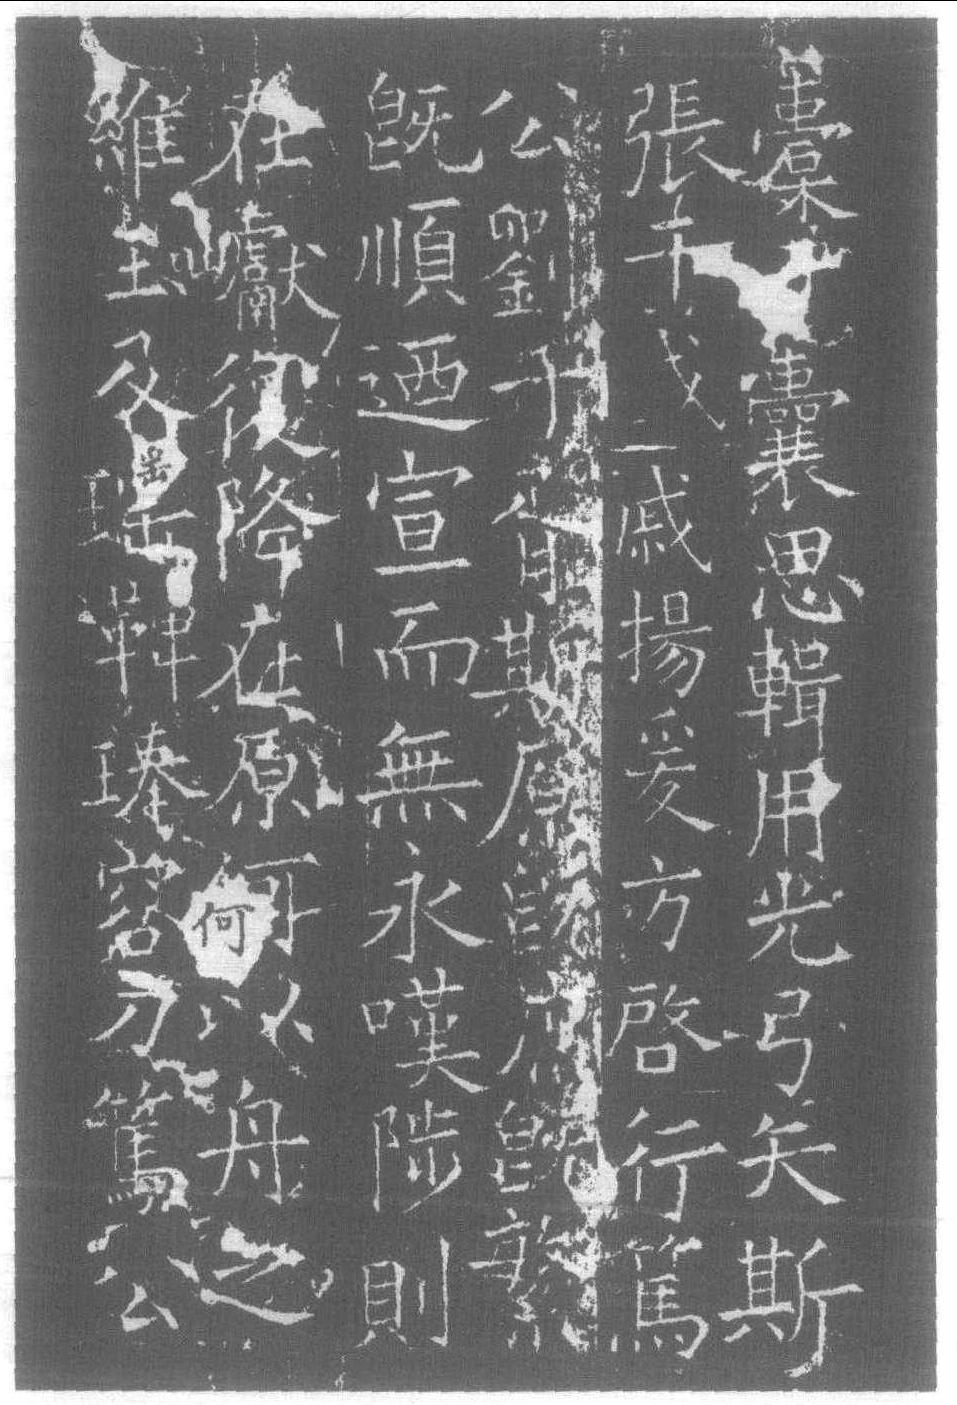 橐于囊思輯用光弓矢斯
張干戈戚揚爰方啓行篤
公劉于胥斯原既庶既繁
既順迺宣而無永嘆陟則
在巘復降在原何以舟之
維玉及瑤鞞琫容刀篤公